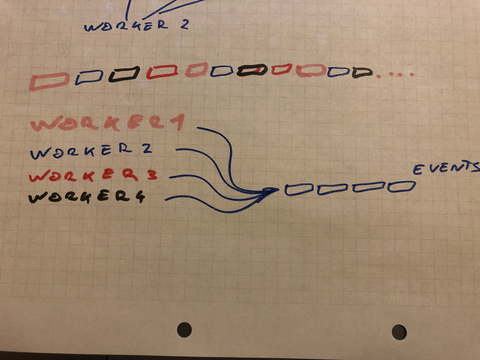 WORKER 2
WORKER 1
WORKER 2
WORKER 3
WORKER 4
EVENTS